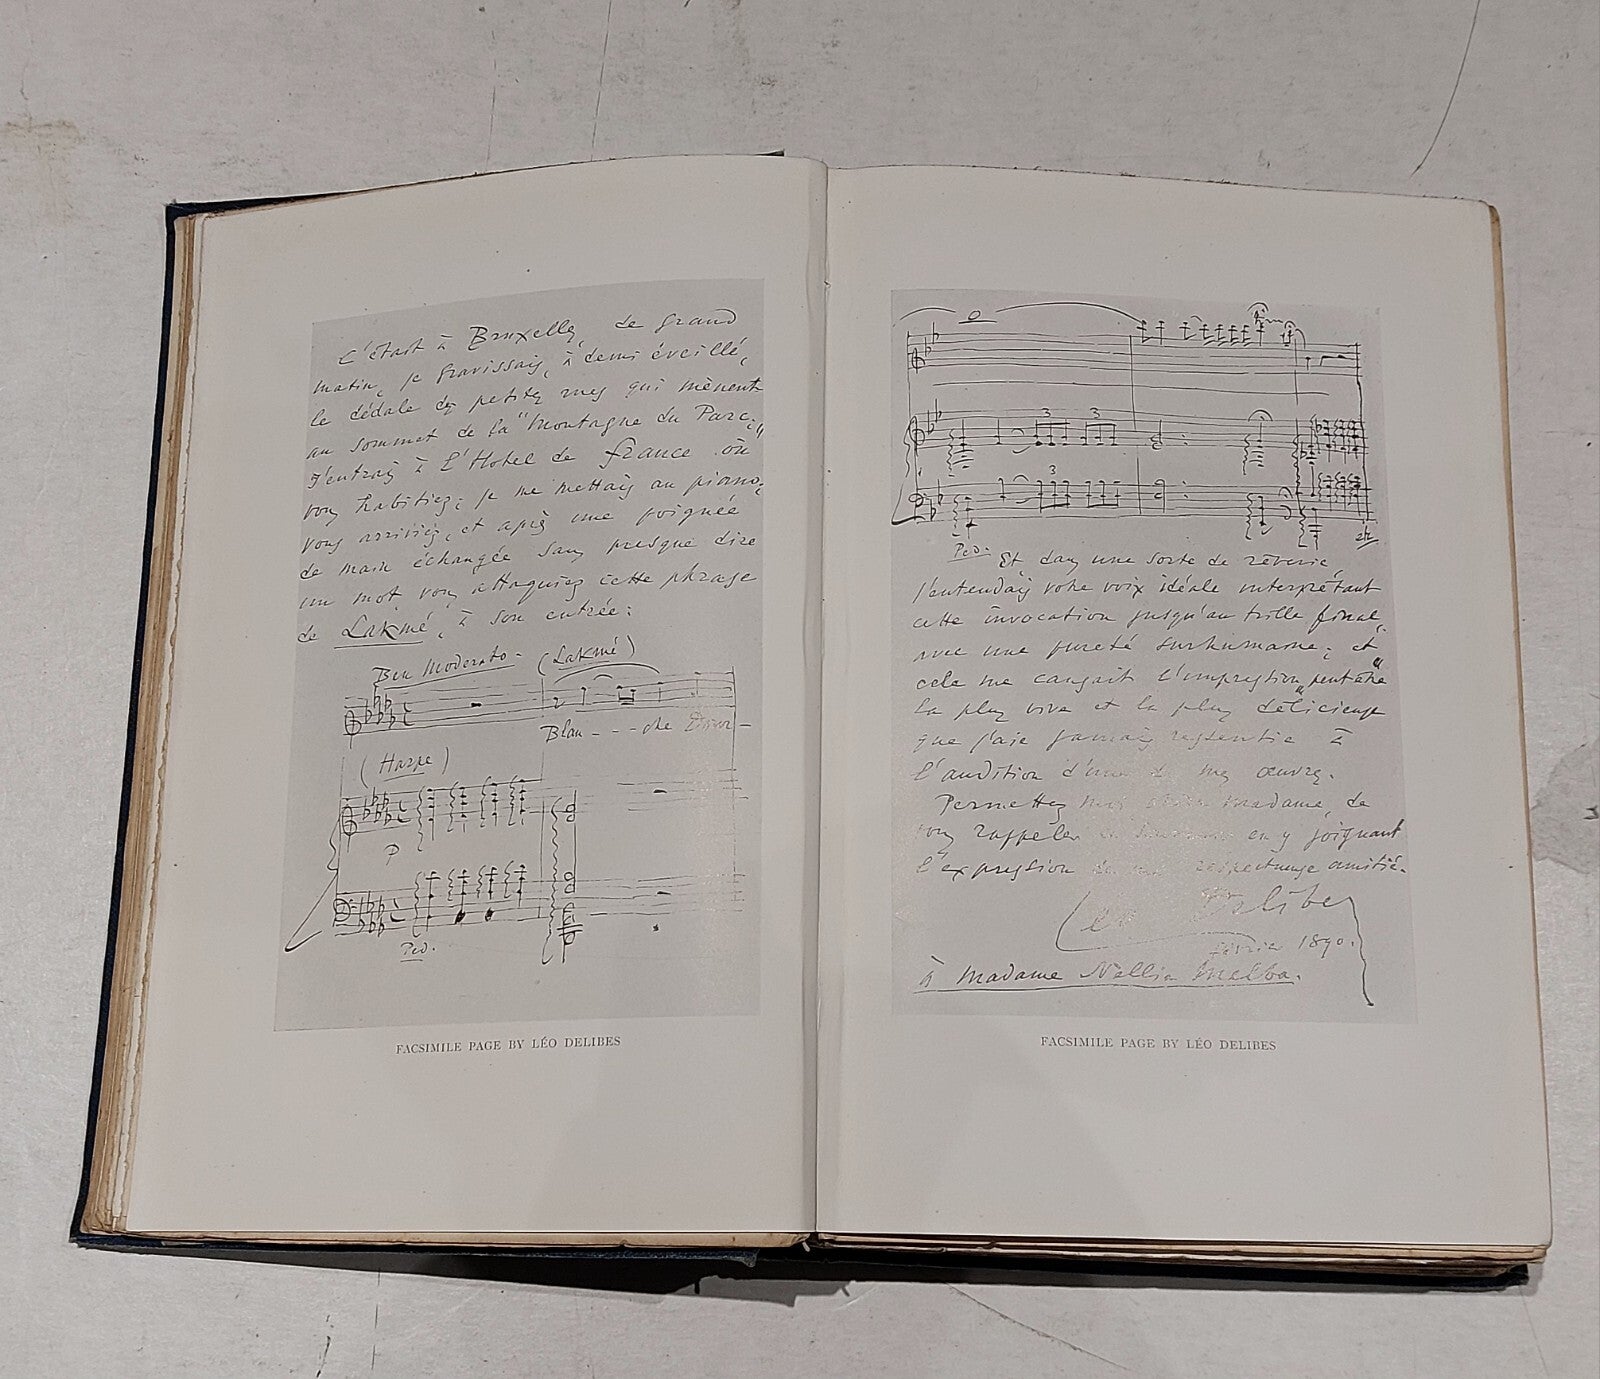 C'était à Bruxelles, de grand
matin, je gravissais, à demi éveillé,
le dédale des petites rues qui mènent
au sommet de la "Montagne du Parc;"
J'entrais à l'Hotel de France où
vous habitiez; je me mettais au piano;
vous arriviez, et après une poignée
de main échangée sans presque dire
un mot, vous attaquiez cette phrase
de Lakmé, à son entrée:
Ben Moderato - (Lakmé)
Blan - - - che Dour -
(Harpe)
P
Ped.
FACSIMILE PAGE BY LÉO DELIBES
3 3
3
Ped.
Et dans une sorte de rêverie,
j'entendais votre voix idéale interprétant
cette invocation jusqu'au trille final,
avec une pureté surhumaine; et
cela me causait l'impression "peut-être
la plus vive et la plus délicieuse"
que j'aie jamais ressentie à
l'audition d'une de mes œuvres.
Permettez moi, chère Madame, de
vous rappeler en y joignant
l'expression de ma respectueuse amitié.
Léo Delibes
février 1890.
à Madame Nellie Melba.
FACSIMILE PAGE BY LÉO DELIBES